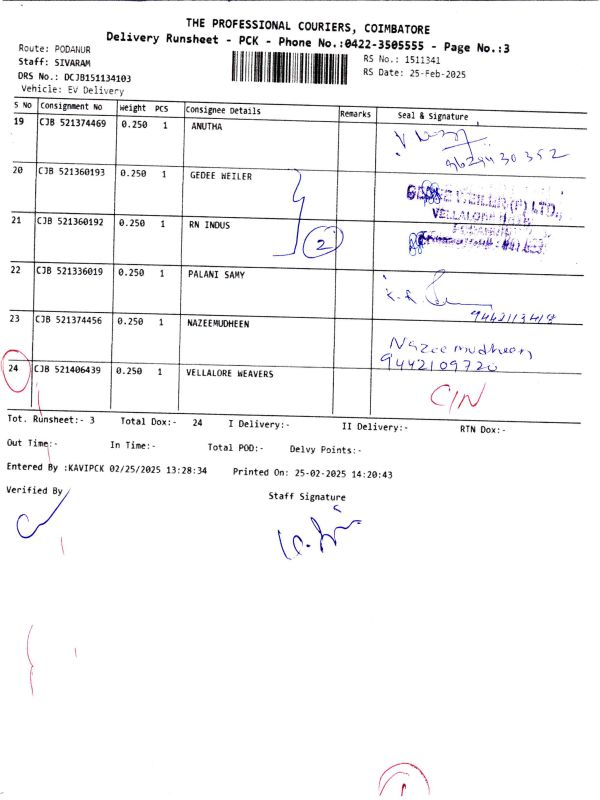 THE PROFESSIONAL COURIERS, COIMBATORE
Delivery Runsheet - PCK - Phone No.:0422-3505555 - Page No.:3
Route: PODANUR
RS No.: 1511341
Staff: SIVARAM
RS Date: 25-Feb-2025
DRS No.: DCJB151134103
Vehicle: EV Delivery
S No Consignment No Weight PCS Consignee Details Remarks Seal & Signature
19 CJB 521374469 0.250 1 ANUTHA
9629430352
20 CJB 521360193 0.250 1 GEDEE WEILER
21 CJB 521360192 0.250 1 RN INDUS
2
VELLALORE
22 CJB 521336019 0.250 1 PALANI SAMY
K.R
9442113418
23 CJB 521374456 0.250 1 NAZEEMUDHEEN
Nazeemudheen
9442109720
24 CJB 521406439 0.250 1 VELLALORE WEAVERS
C/N
Tot. Runsheet:- 3 Total Dox:- 24 I Delivery:- II Delivery:- RTN Dox:-
Out Time:- In Time:- Total POD:- Delvy Points:-
Entered By :KAVIPCK 02/25/2025 13:28:34 Printed On: 25-02-2025 14:20:43
Verified By Staff Signature